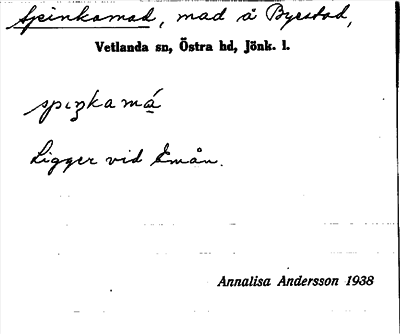 Spinkamad, mad å Byestad,
Vetlanda sn, Östra hd, Jönk. l.
spıŋkamá
Ligger vid Emån.
Annalisa Andersson 1938